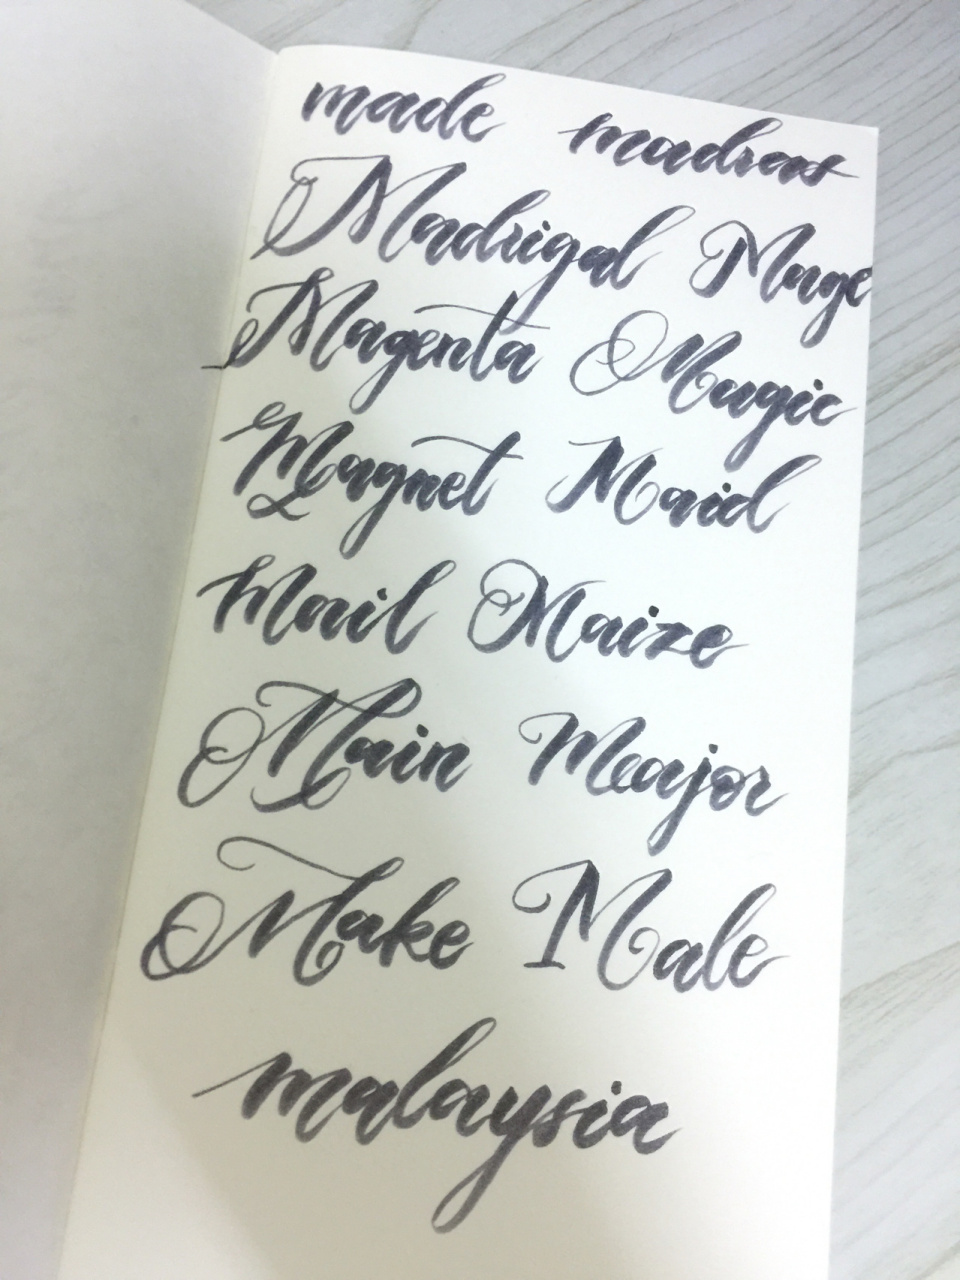 made madras
Madrigal Mage
Magenta Magic
Magnet Maid
Mail Maize
Main Major
Make Male
malaysia